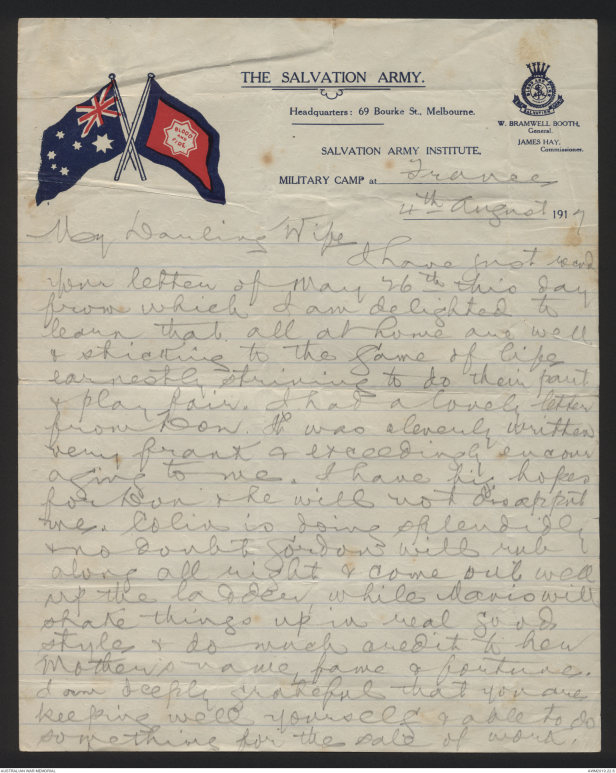 THE SALVATION ARMY.
Headquarters: 69 Bourke St., Melbourne.
W. BRAMWELL BOOTH,
General.
JAMES HAY,
Commissioner.
BLOOD
AND
FIRE
SALVATION ARMY INSTITUTE,
MILITARY CAMP at France
4th August 1917
My Darling Wife
I have just recvd
your letter of May 26th this day
from which I am delighted to
learn that all at home are well
& sticking to the game of life
earnestly striving to do their part
& play fair. I had a lovely letter
from Don. It was cleverly written
very frank & exceedingly encour
aging to me. I have big hopes
for Don & he will not disappnt
me. Colin is doing splendidly
& no doubt Gordon will rub
along all right & come out well
up the ladder while Mavis will
shake things up in real good
style & do much credit to her
Mother's name, fame & fortune.
I am deeply grateful that you are
keeping well yourself & able to do
something for the sale of work.
AUSTRALIAN WAR MEMORIAL